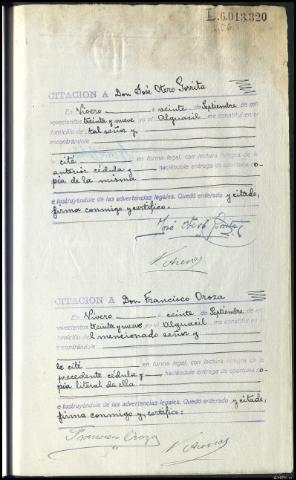 E.6.013,320
CITACION A Don José Otero Sorrita
En Vivero a veinte de Septiembre de mil
novecientos treinta y nueve yo el Alguacil me constituí en el
domicilio de tal señor y
encontrándole
cité en forma legal, con lectura íntegra de la
anterior cédula y haciéndole entrega de oportuna co-
pia de la misma
e instruyéndole de las advertencias legales. Quedó enterado y citado,
firma conmigo y certifico.
José Otero
V. Arenas
CITACION A Don Francisco Oroza
En Vivero a veinte de Septiembre de mil
novecientos treinta y nueve yo el Alguacil me constituí en el
domicilio del mencionado señor y
encontrándole
le cité en forma legal, con lectura íntegra de la
precedente cédula y haciéndole entrega de oportuna co-
pia literal de ella
e instruyéndole de las advertencias legales. Quedó enterado y citado,
firma conmigo y certifico:
Francisco Oroza V. Arenas